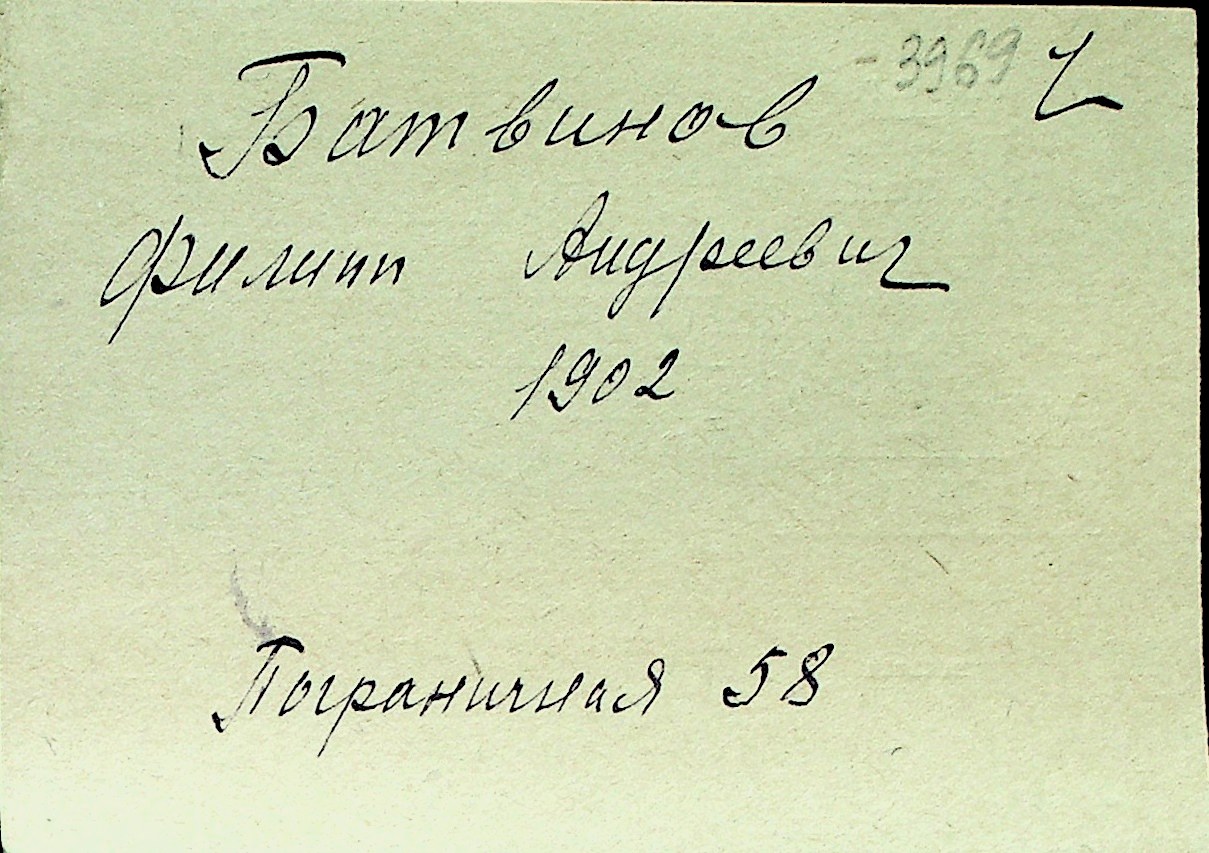 - 3969 ч
Батвинов
Филипп Андреевич
1902
Пограничная 58